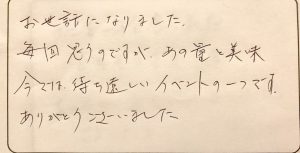 お世話になりました。
毎回思うのですが、あの量と美味
今では、待ち遠しいイベントの一つです。
ありがとうございました